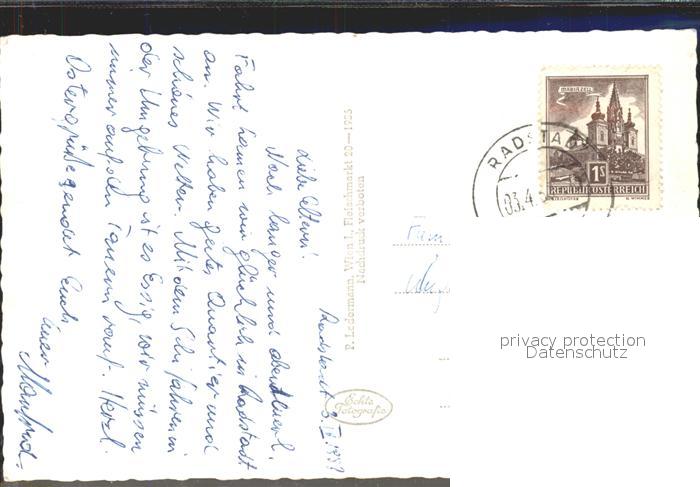 Radstadt 3.IV.1958
Liebe Eltern!
Nach langer und abenteuerl.
Fahrt kamen wir glücklich in Radstadt
an. Wir haben gutes Quartier und
schönes Wetter. Mit dem Schifahren in
der Umgebung ist es Essig, wir müssen
immer auf den Tauern rauf. Herzl.
Ostergrüße sendet Euch
Euer
Manfred.
P. Ledermann, Wien I., Fleischmarkt 20—1955
Nachdruck verboten
Echte
Fotografie
MARIAZELL
1S
REPUBLIK ÖSTERREICH
RADSTA
03.4.5
privacy protection
Datenschutz